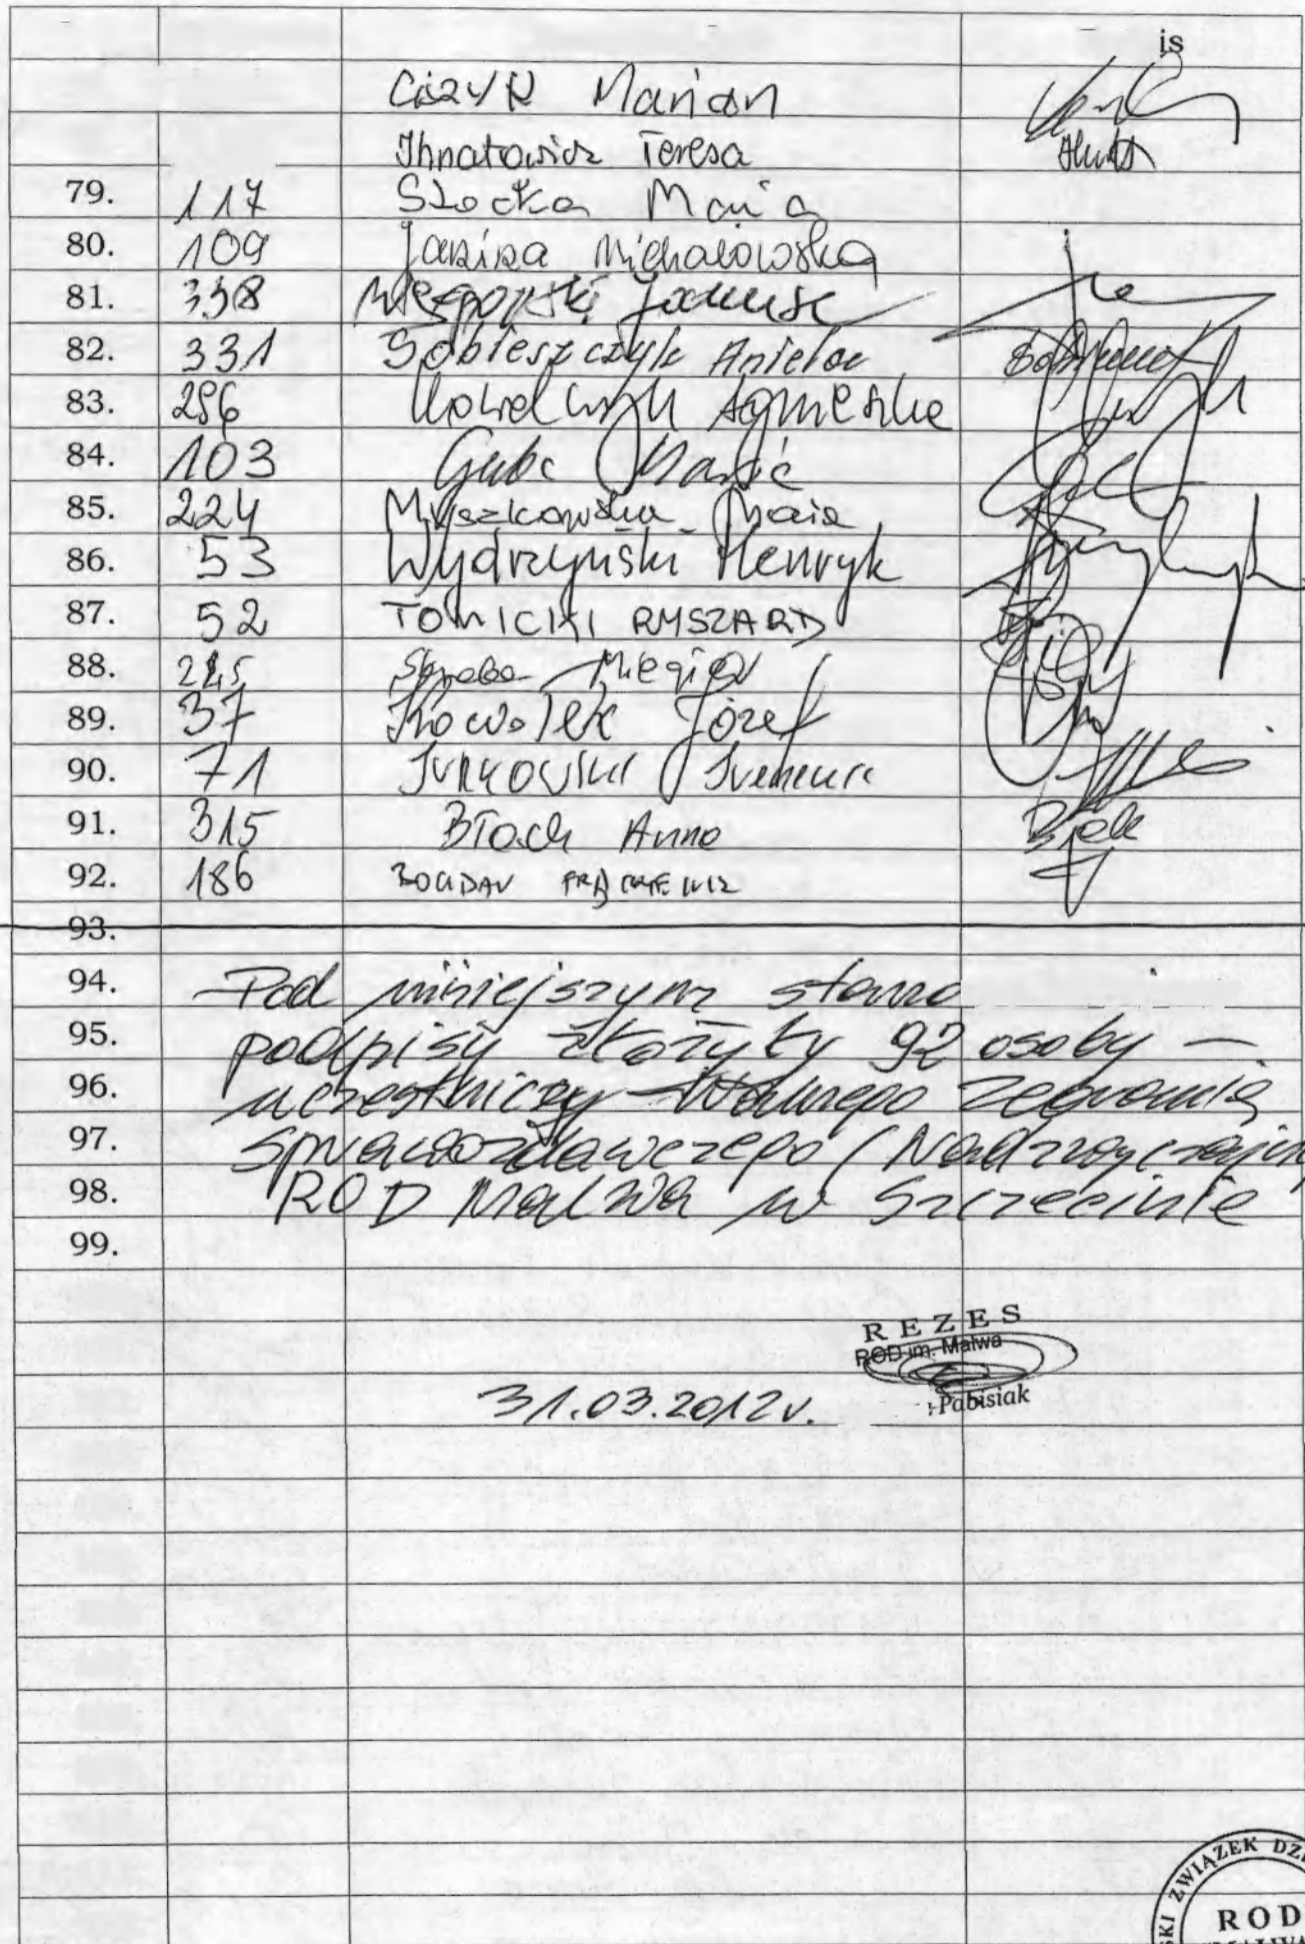 is
Marian
Ihnatowicz Teresa
79. 117 Szocka Maria
80. 109 Janina Michałowska
81. 338 Janusz
82. 331 Sobieszczyk Aniela
83. 296 Kowalczyk Agnieszka
84. 103 Guba Maria
85. 224 Myszkowska Maria
86. 53 Wydrzyński Henryk
87. 52 TOMICKI RYSZARD
88. 215
89. 37 Kowalek Józef
90. 71
91. 315 Błoch Anna
92. 186 BOGDAN
93.
94. Pod niniejszym
95. podpisy złożyły 92 osoby –
96. uczestnicy Walnego Zebrania
97. Sprawozdawczego (Nadzwyczajn
98. ROD Malwa w Szczecinie
99.
REZES
ROD im. Malwa
Pabisiak
31.03.2012r.
SKI ZWIĄZEK DZ
ROD